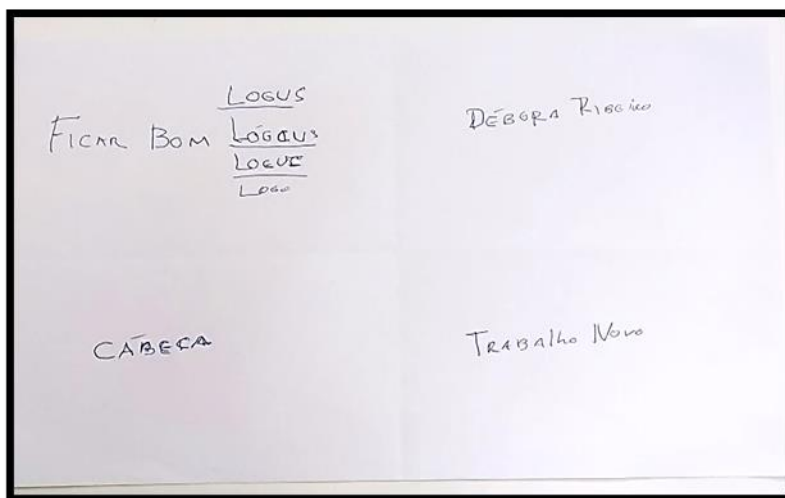 LOGUS
FICAR BOM LÓGCUS
LOGUE
LOGO
DÉBORA RIBEIRO
CABEÇA
TRABALHO NOVO